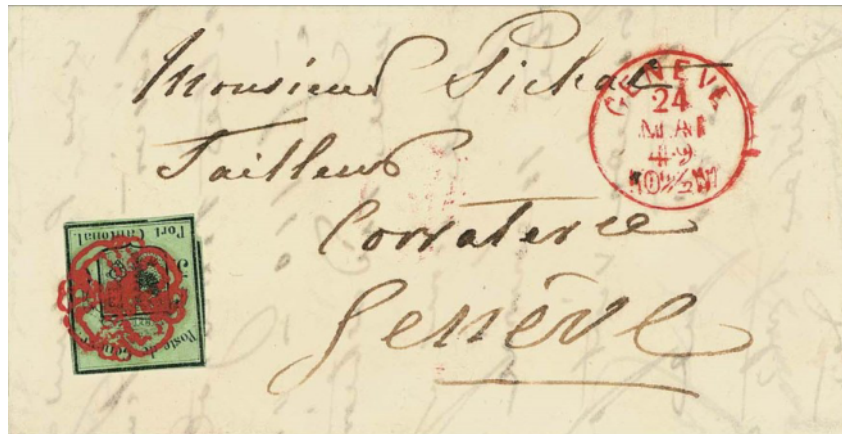 Monsieur Pichat
Tailleur
Corraterie
Genève
GENÈVE
24
MAI
49
10½M
Port Cantonal.
Poste de Genève